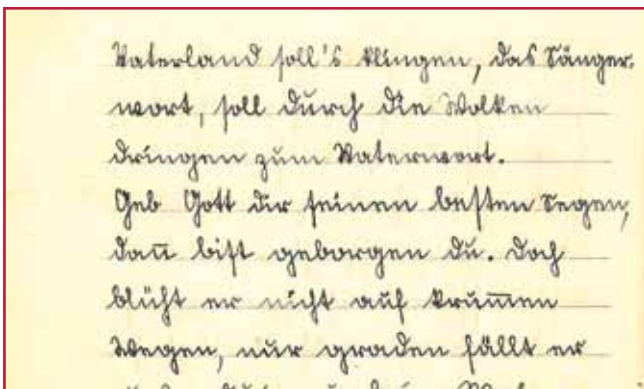 Vaterland soll's klingen, das Sänger-
wort, soll durch die Wolken
dringen zum Vaterwort.
Geb Gott dir seinen besten Segen,
dan̅ bist geborgen du. Doch
blüht er nicht auf krum̅en
Wegen, nur graden fällt er